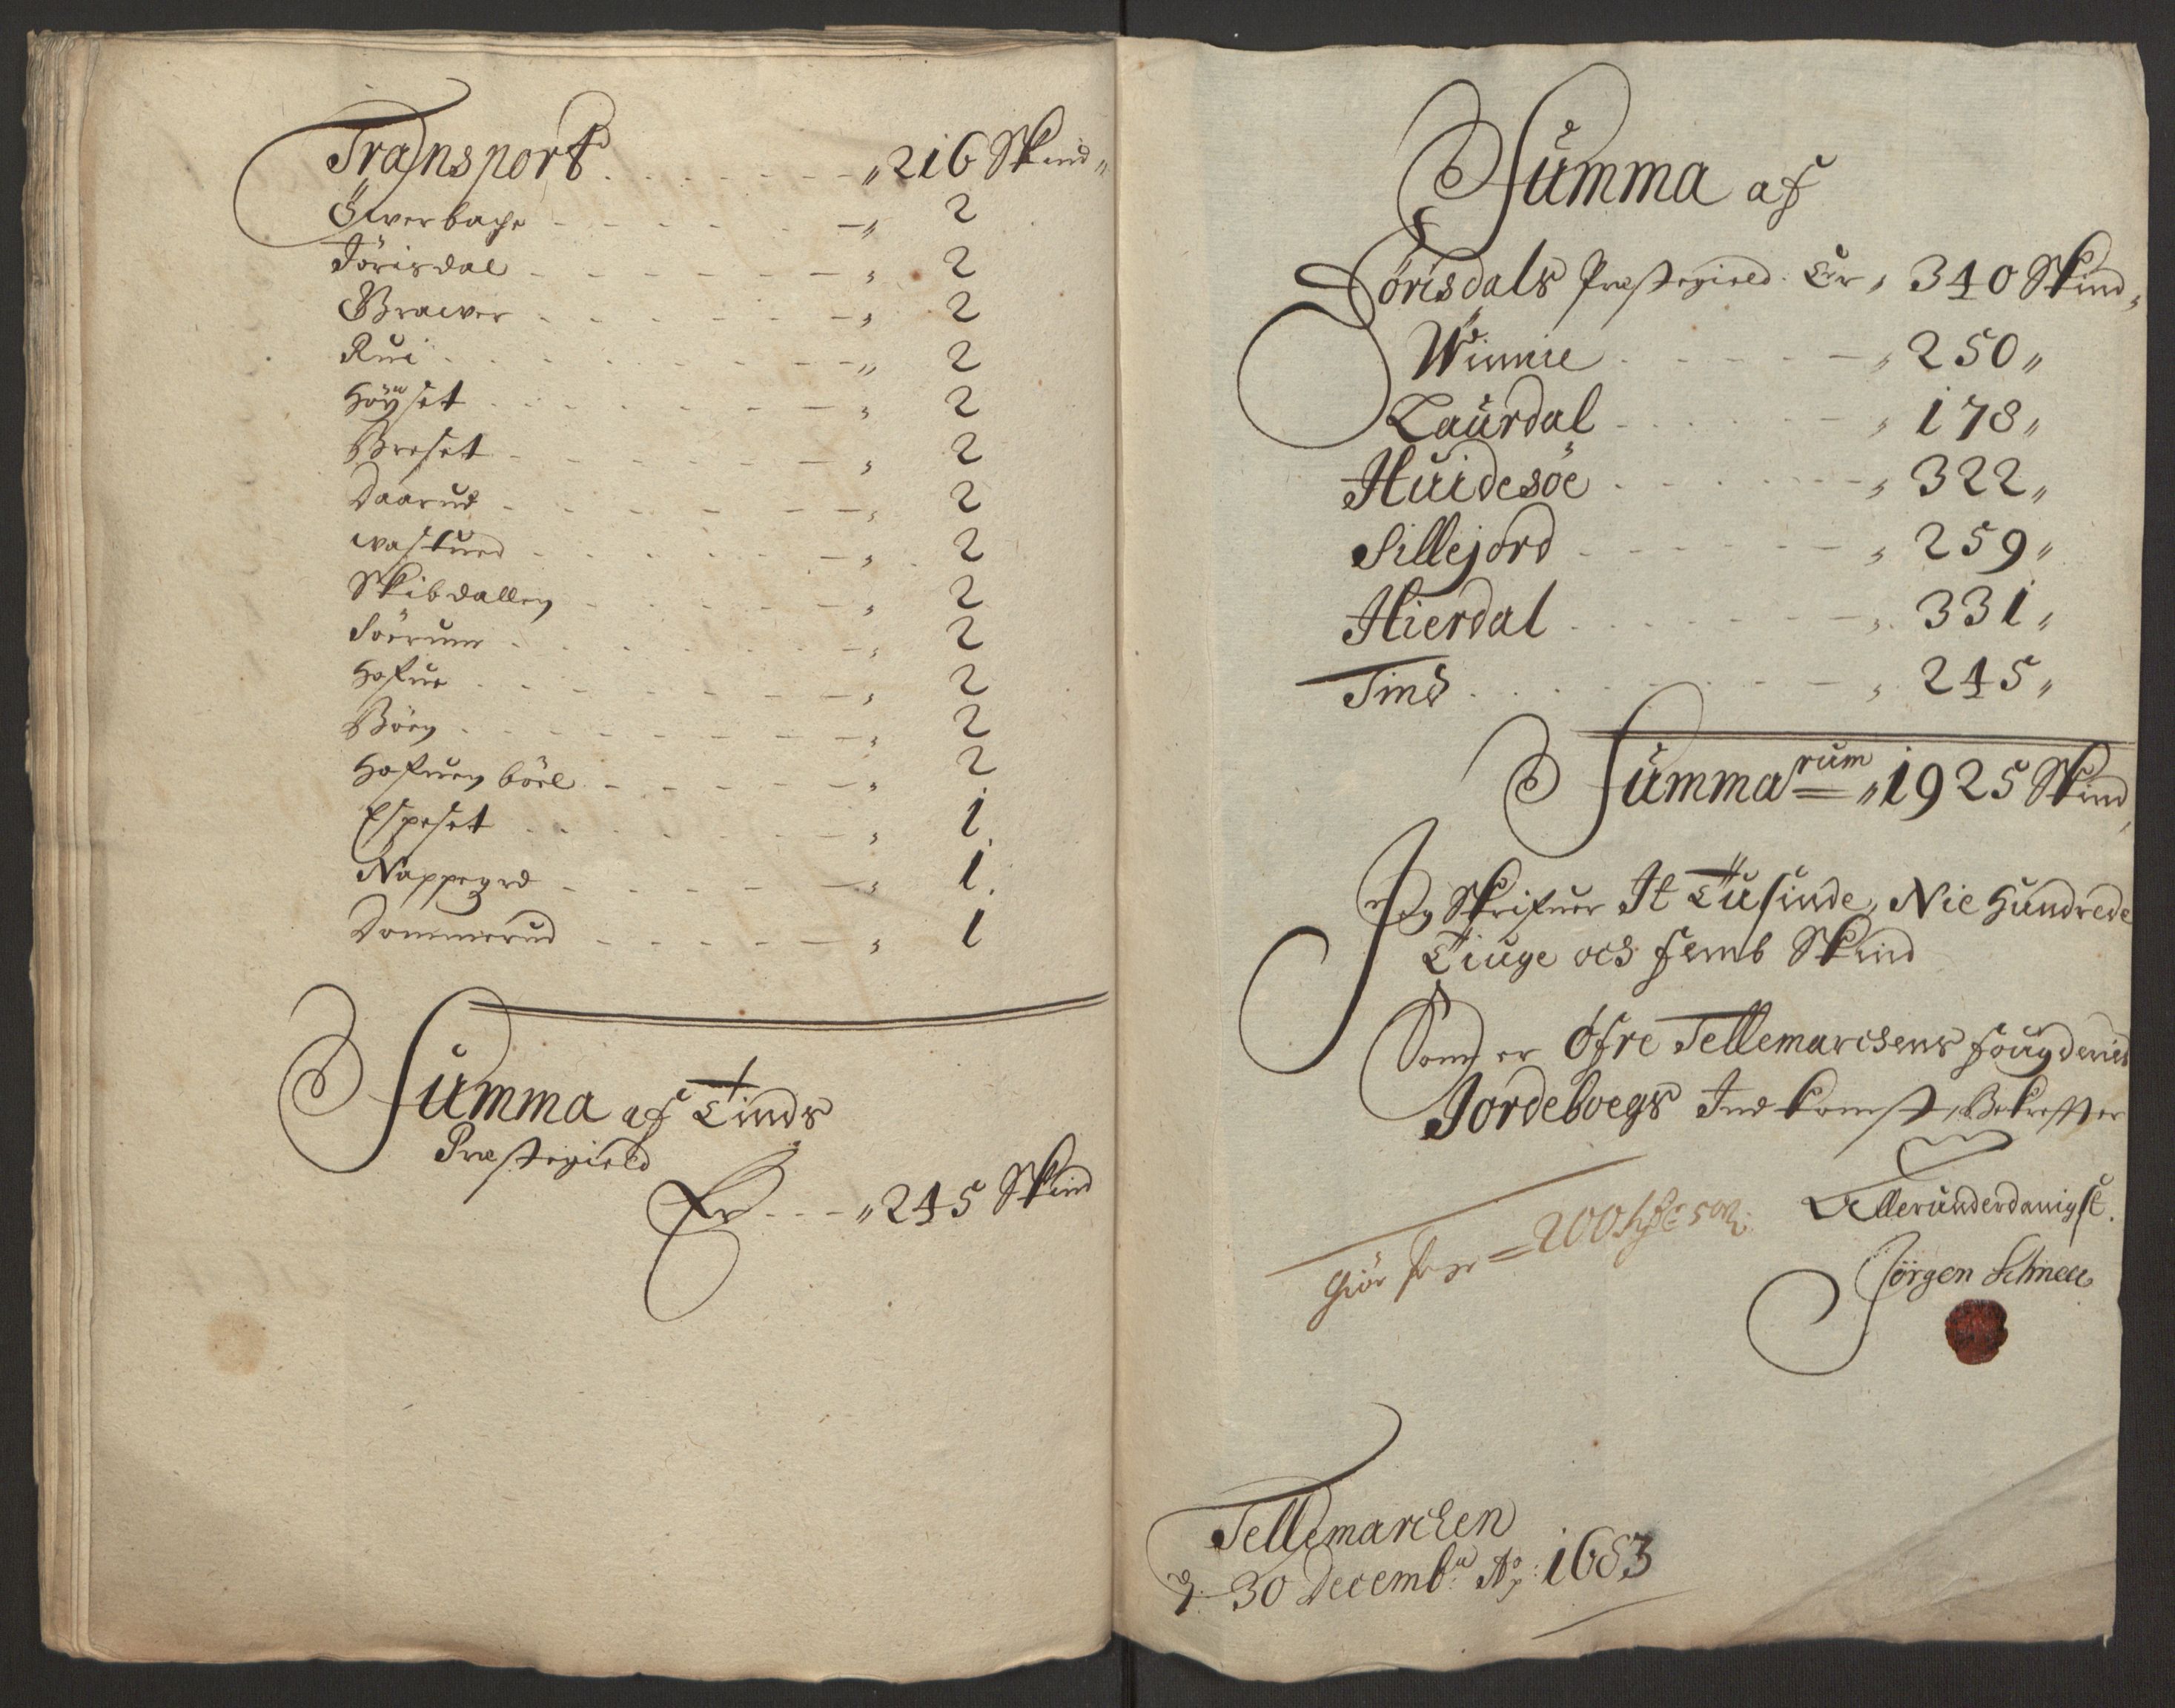 Transport . . . . . . . 216 Skind
Öwerbache - - - - - - 2
Jörisdal - - - - - - 2
Brawer - - - - - - 2
Rui - - - - - - 2
Höÿset - - - - - - 2
Breset - - - - - - 2
Daarud - - - - - - 2
wastued - - - - - - 2
Skibdallen - - - - - - 2
Söerum - - - - - - 2
Hafue - - - - - - 2
Böen - - - - - - 2
Hafuen böel - - - - - 2
Espeset - - - - - - 1
Nappegrd - - - - - 1
Dommerud - - - - - 1
Summa af Tinds
Præstegield
Er - - - 245 Skind
Summa af
Jörisdals Præstegield Er, 340 Skind,
Winnie - - - - - 250
Laurdal - - - - - 178
Huidesöe - - - - - 322
Sillejord - - - - - 259
Hierdal - - - - - 331
Tind - - - - - 245
Summarum = 1925 Skind
Jeg Skrifuer It Tusinde, Nie Hundrede
Tiuge och femb Skind
Som er Öfre Tellemarchens fougderies
Jordeboegs Indkomst, Bekreffter
Allerunderdanigst.
Jörgen Schnell
Giör =200
Tellemarchen
d. 30 Decembr Ao: 1683